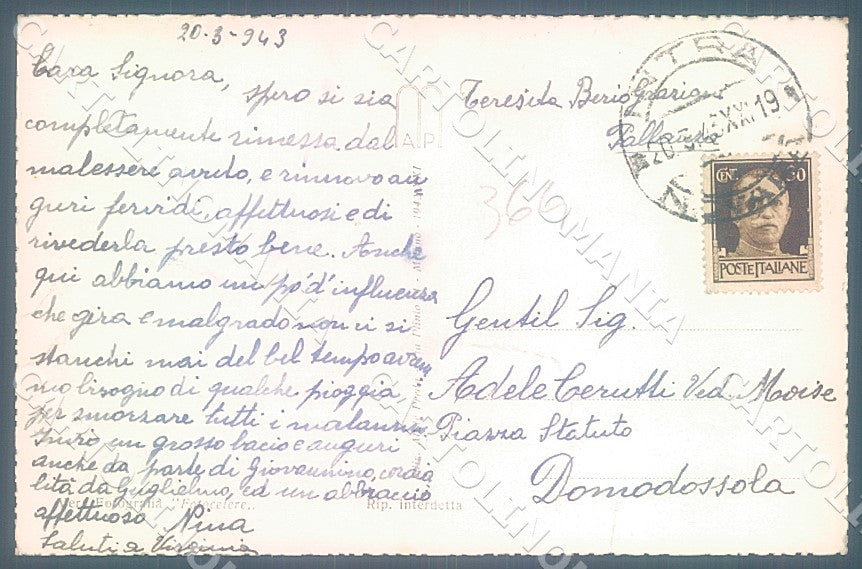 20-3-943
Cara Signora,
spero si sia
completamente rimessa dal
malessere avuto, e rinnovo au
guri fervidi, affettuosi e di
rivederla presto bene. Anche
qui abbiamo un pò d'influenza
che gira e malgrado non ci si
stanchi mai del bel tempo avrem
mo bisogno di qualche pioggia
per smorzare tutti i malanni
Invio un grosso bacio e auguri
anche da parte di Giovannino, cordia
lità da Guglielmo, ed un abbraccio
affettuoso Nina
Saluti a Virginia
Teresita
Pallanza
AP
366
INTRA
20.3.43.XXI 19
CENT. 30
POSTE ITALIANE
Gentil Sig.
Adele Cerutti Ved. Moise
Piazza Statuto
Domodossola
Vera Fotografia "Fotocelere"
Rip. interdetta
CARTOLINOMANIA